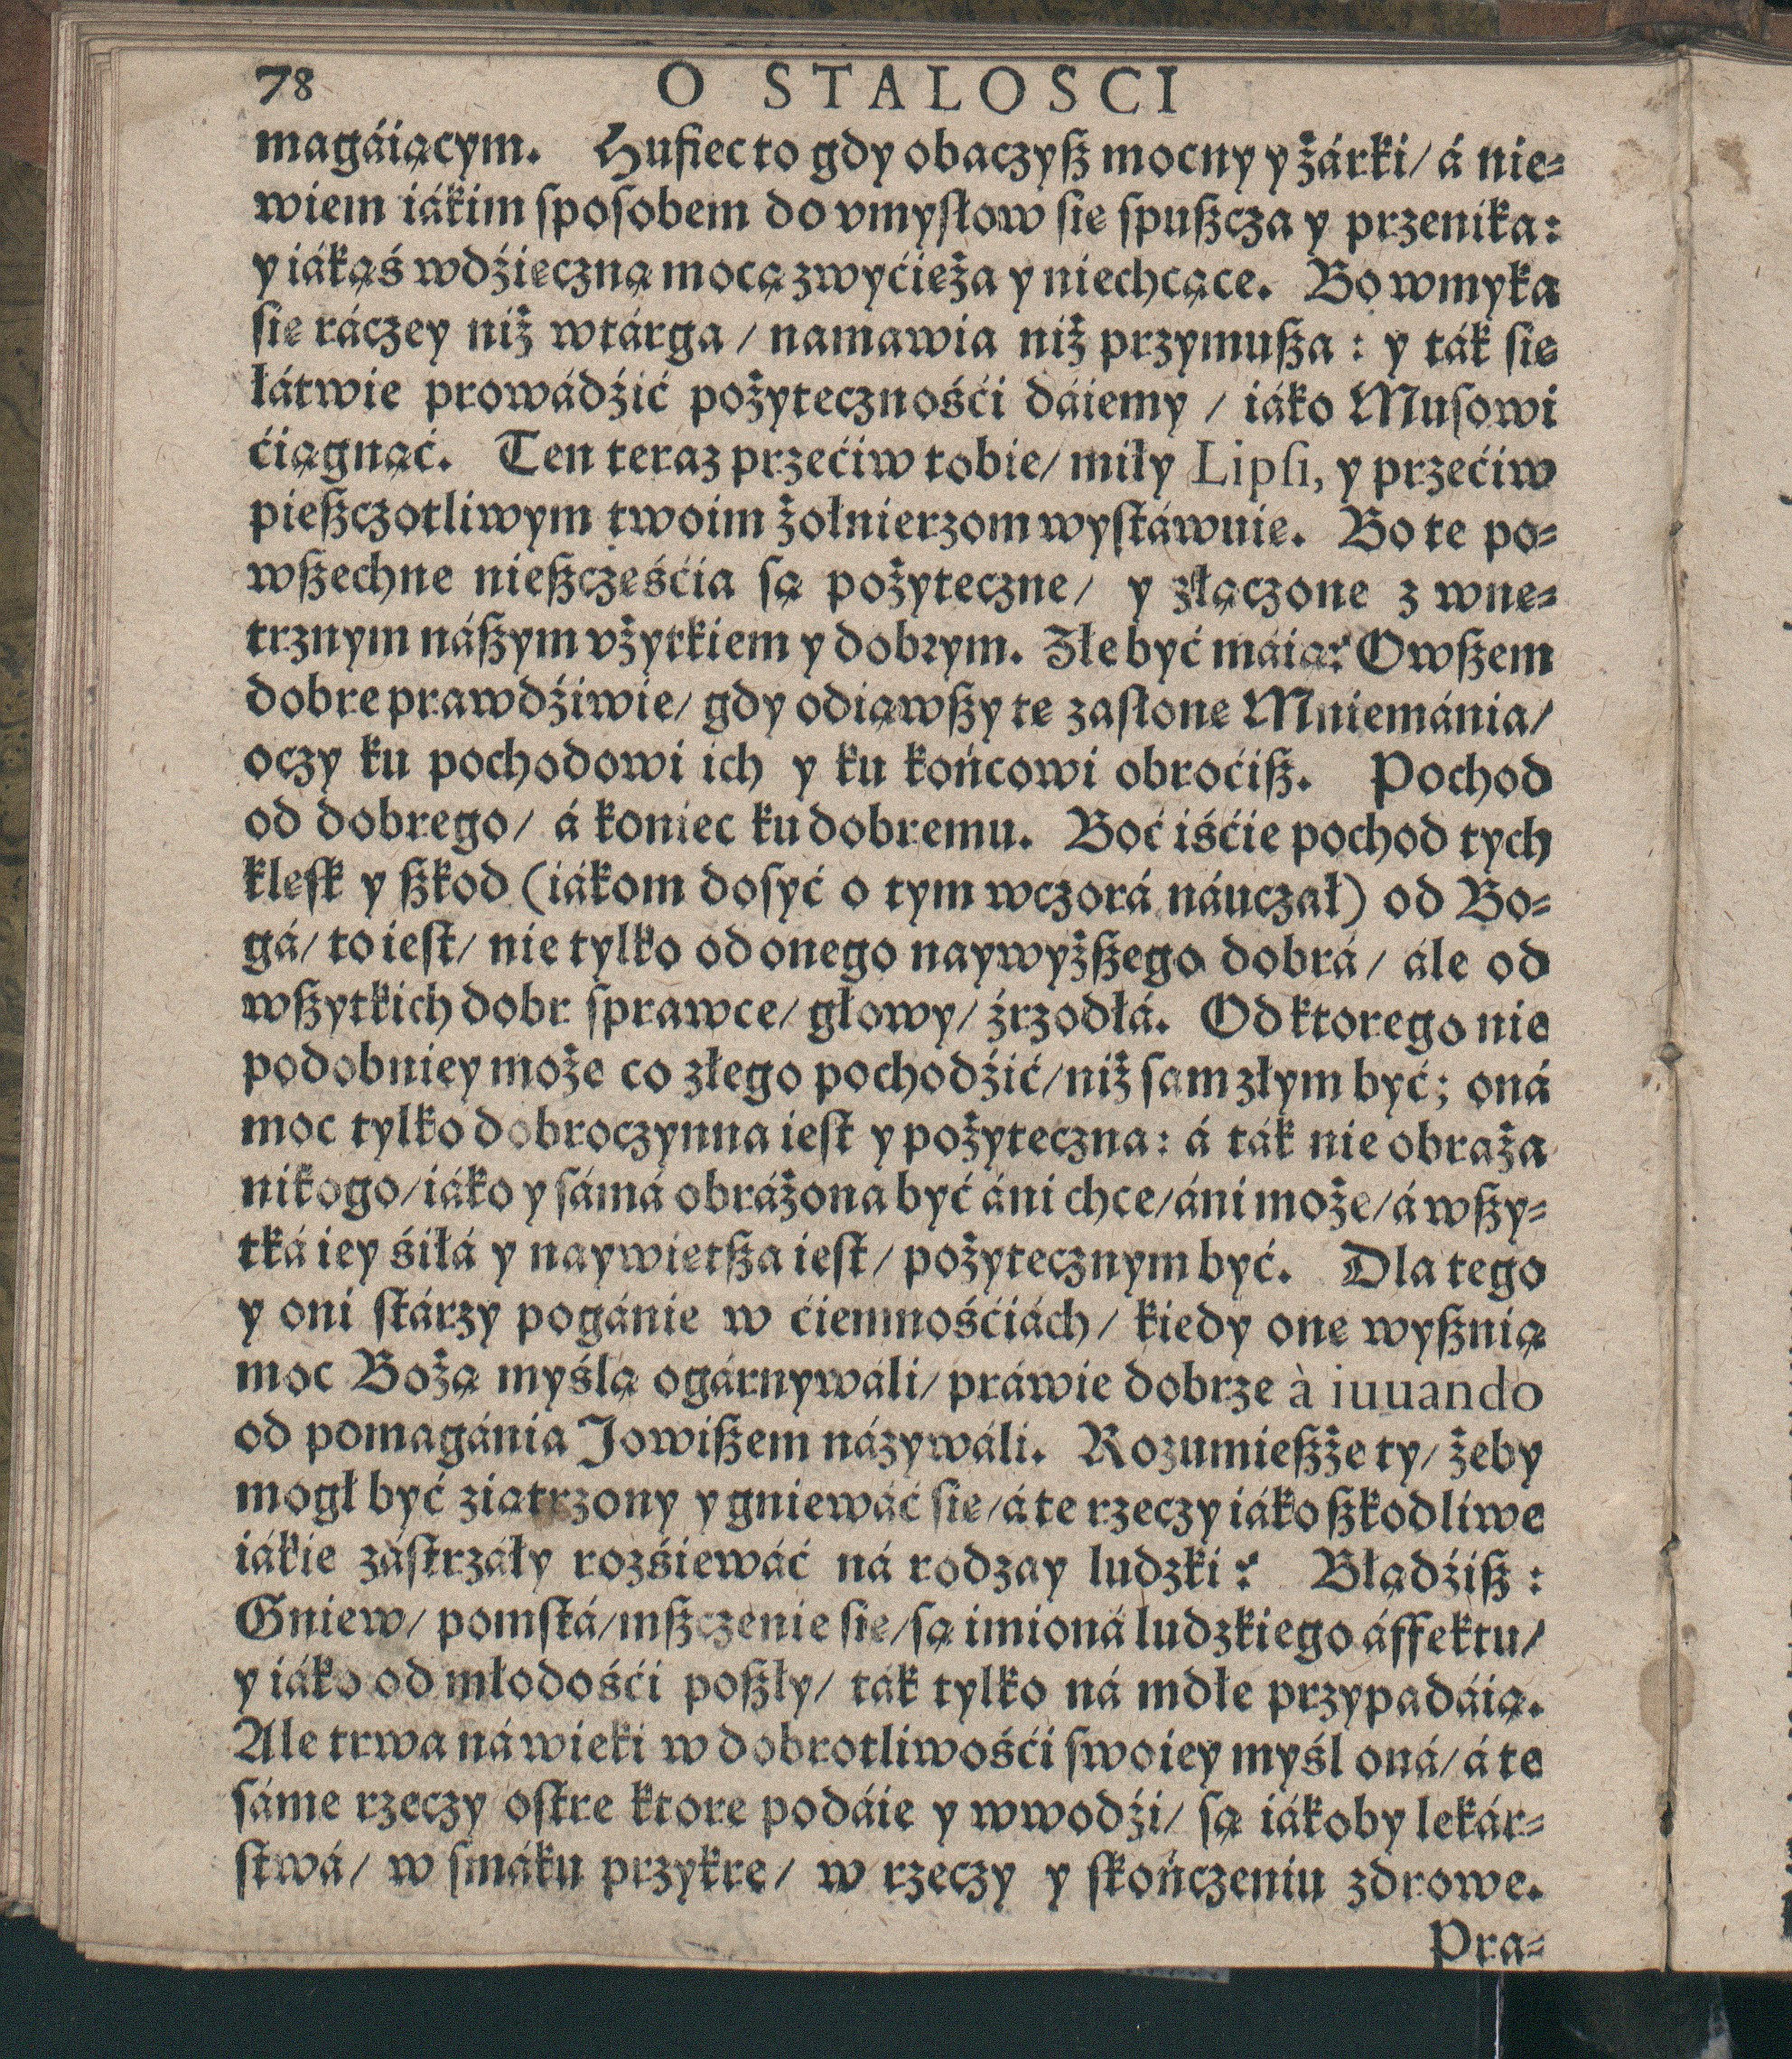 78 O STALOSCI
magáiącym. Hufiec to gdy obaczyſz mocny y żárki/ á nie-
wiem iákim ſpoſobem do vmyſłow ſię ſpuſzcza y przenika:
y iákąś wdźięczną mocą zwyćięża y niechcące. Bo wmyka
ſię ráczey niż wtárga / namawia niż przymuſza : y ták ſię
łátwie prowádźić pożytecznośći dáiemy / iáko Muſowi
ćiągnąć. Ten teraz przećiw tobie/ miły Lipſi, y przećiw
pieſzczotliwym twoim żołnierzom wyſtáwuię. Bo te po-
wſzechne nieſzczęśćia ſą pożyteczne/ y złączone z wnę-
trznym náſzym vżytkiem y dobrym. Złe być máią? Owſzem
dobre prawdźiwie/ gdy odiąwſzy tę zaſłonę Mniemánia/
oczy ku pochodowi ich y ku końcowi obroćiſz. Pochod
od dobrego/ á koniec ku dobremu. Boć iśćie pochod tych
klęſk y ſzkod (iákom doſyć o tym wczorá náuczał) od Bo-
gá/ to ieſt/ nie tylko od onego naywyżſzego dobrá / ále od
wſzytkich dobr ſprawce/ głowy/ źrzodłá. Od ktorego nie
podobniey może co złego pochodźić/ niż ſam złym być; oná
moc tylko dobroczynna ieſt y pożyteczna: á ták nie obraża
nikogo/ iáko y ſámá obráżona być áni chce/ áni może/ á wſzy-
tká iey śiłá y naywiętſza ieſt / pożytecznym być. Dla tego
y oni ſtárzy pogánie w ćiemnośćiách / kiedy onę wyſznią
moc Bożą myślą ogárnywáli/ práwie dobrze à iuuando
od pomagánia Jowiſzem názywáli. Rozumieſzże ty/ żeby
mogł być ziątrzony y gniewáć ſię/ á te rzeczy iáko ſzkodliwe
iákie záſtrzáły rozśiewáć ná rodzay ludzki? Błądźiſz :
Gniew/ pomſtá/ mſzczenie ſię/ ſą imioná ludzkiego áffektu/
y iáko od młodośći poſzły/ ták tylko ná mdłe przypadáią.
Ale trwa ná wieki w dobrotliwośći ſwoiey myśl oná/ á te
ſáme rzeczy oſtre ktore podáie y wwodźi/ ſą iákoby lekár-
ſtwá/ w ſmáku przykre/ w rzeczy y ſkończeniu zdrowe.
Pra-